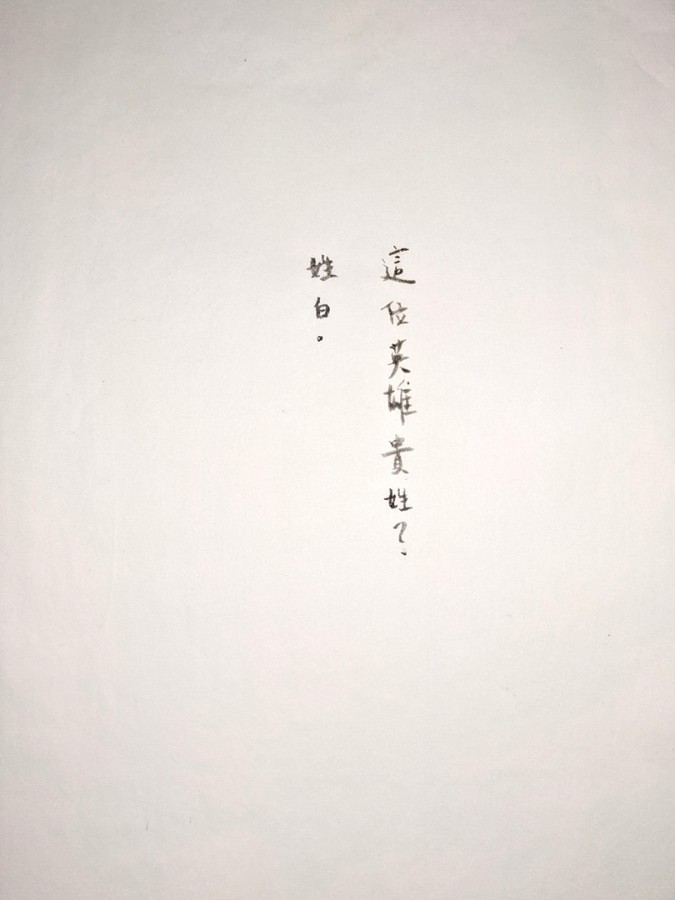 這位英雄貴姓？
姓白。